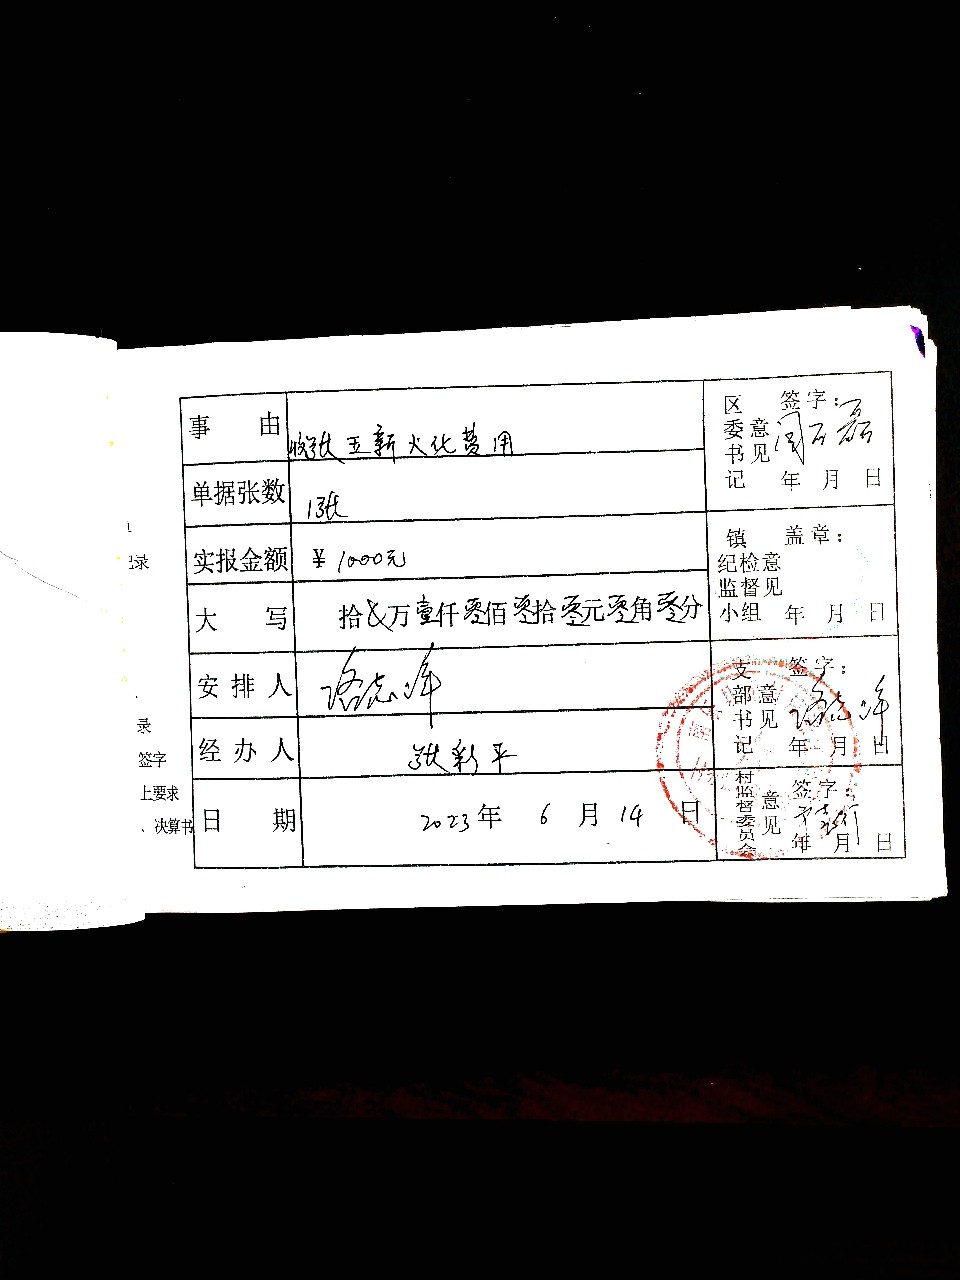 事 由
张玉新火化费用
单据张数
1张
实报金额
¥1000元
大 写
拾 万壹仟零佰零拾零元零角零分
安排人
经办人
张彩平
日 期
2023年 6 月 14 日
区委书记意见
签字：
年 月 日
镇纪检监督小组意见
盖章：
年 月 日
支部书记意见
签字：
年 月 日
村监督委员会意见
签字：
年 月 日
记录
录
签字
上要求
、决算书